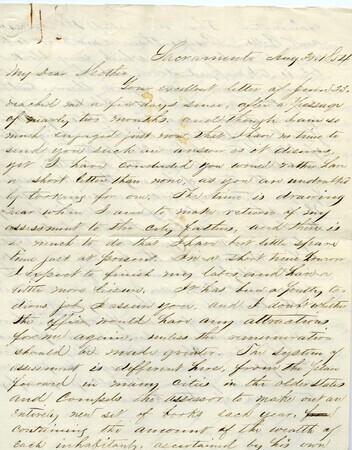 Sacramento Aug 3rd 54
My Dear Mother
Your excellent letter of June 23d
reached me a few days since, after a passage
of nearly two months, and though I am so
much engaged just now that I have no time to
send you such an answer as it deserves,
yet I have concluded you would rather have
a short letter than none, as you are undoubted
ly looking for one. The time is drawing
near when I am to make return of my
assessment to the city fathers, and there is
so much to do that I have but little spare
time just at present. In a short time however
I expect to finish my labors and have a
little more leisure. It has been a pretty te
dious job I assure you, and I doubt whether
the office would have any attractions
for me again, unless the remuneration
should be made greater. The system of
assessment is different here, from the plan
followed in many cities in the older states
and compels the assessor to make out an
entirely new set of books each year,
containing the amount of the wealth of
each inhabitant, ascertained by his own